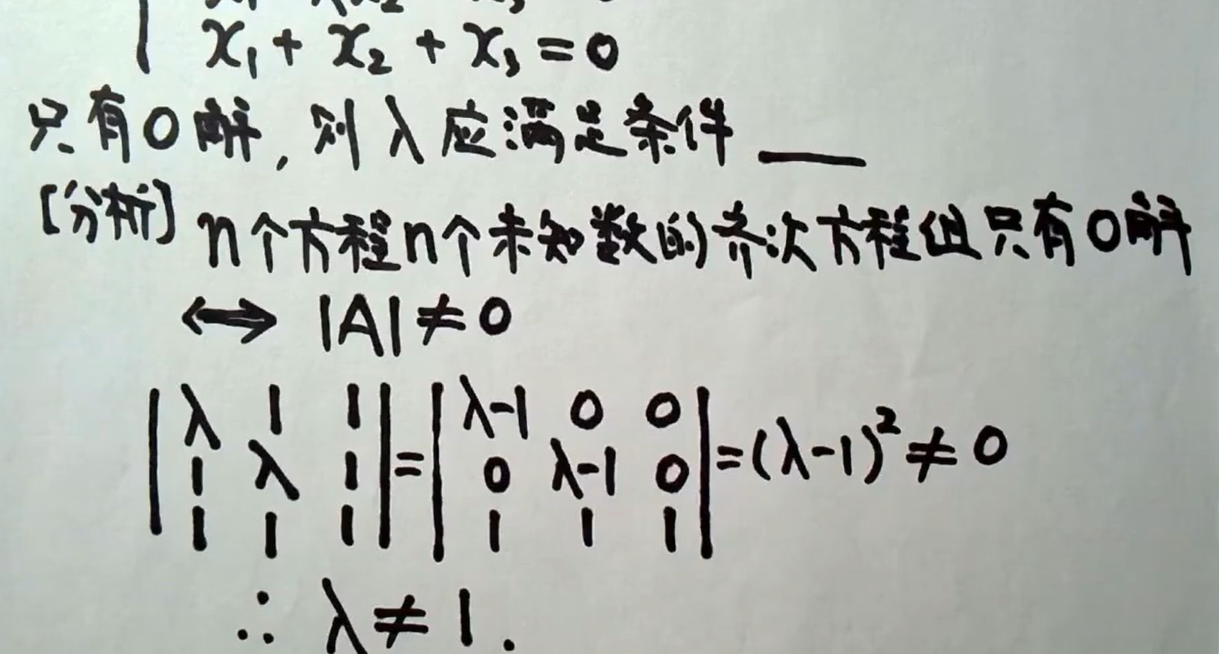 x₁ + x₂ + x₃ = 0
只有0解, 则λ应满足条件 ___
[分析] n个方程n个未知数的齐次方程组只有0解
⟷ |A| ≠ 0
|λ 1 1| = |λ-1 0 0| = (λ-1)² ≠ 0
|1 λ 1| |0 λ-1 0|
|1 1 1| |1 1 1|
∴ λ ≠ 1.